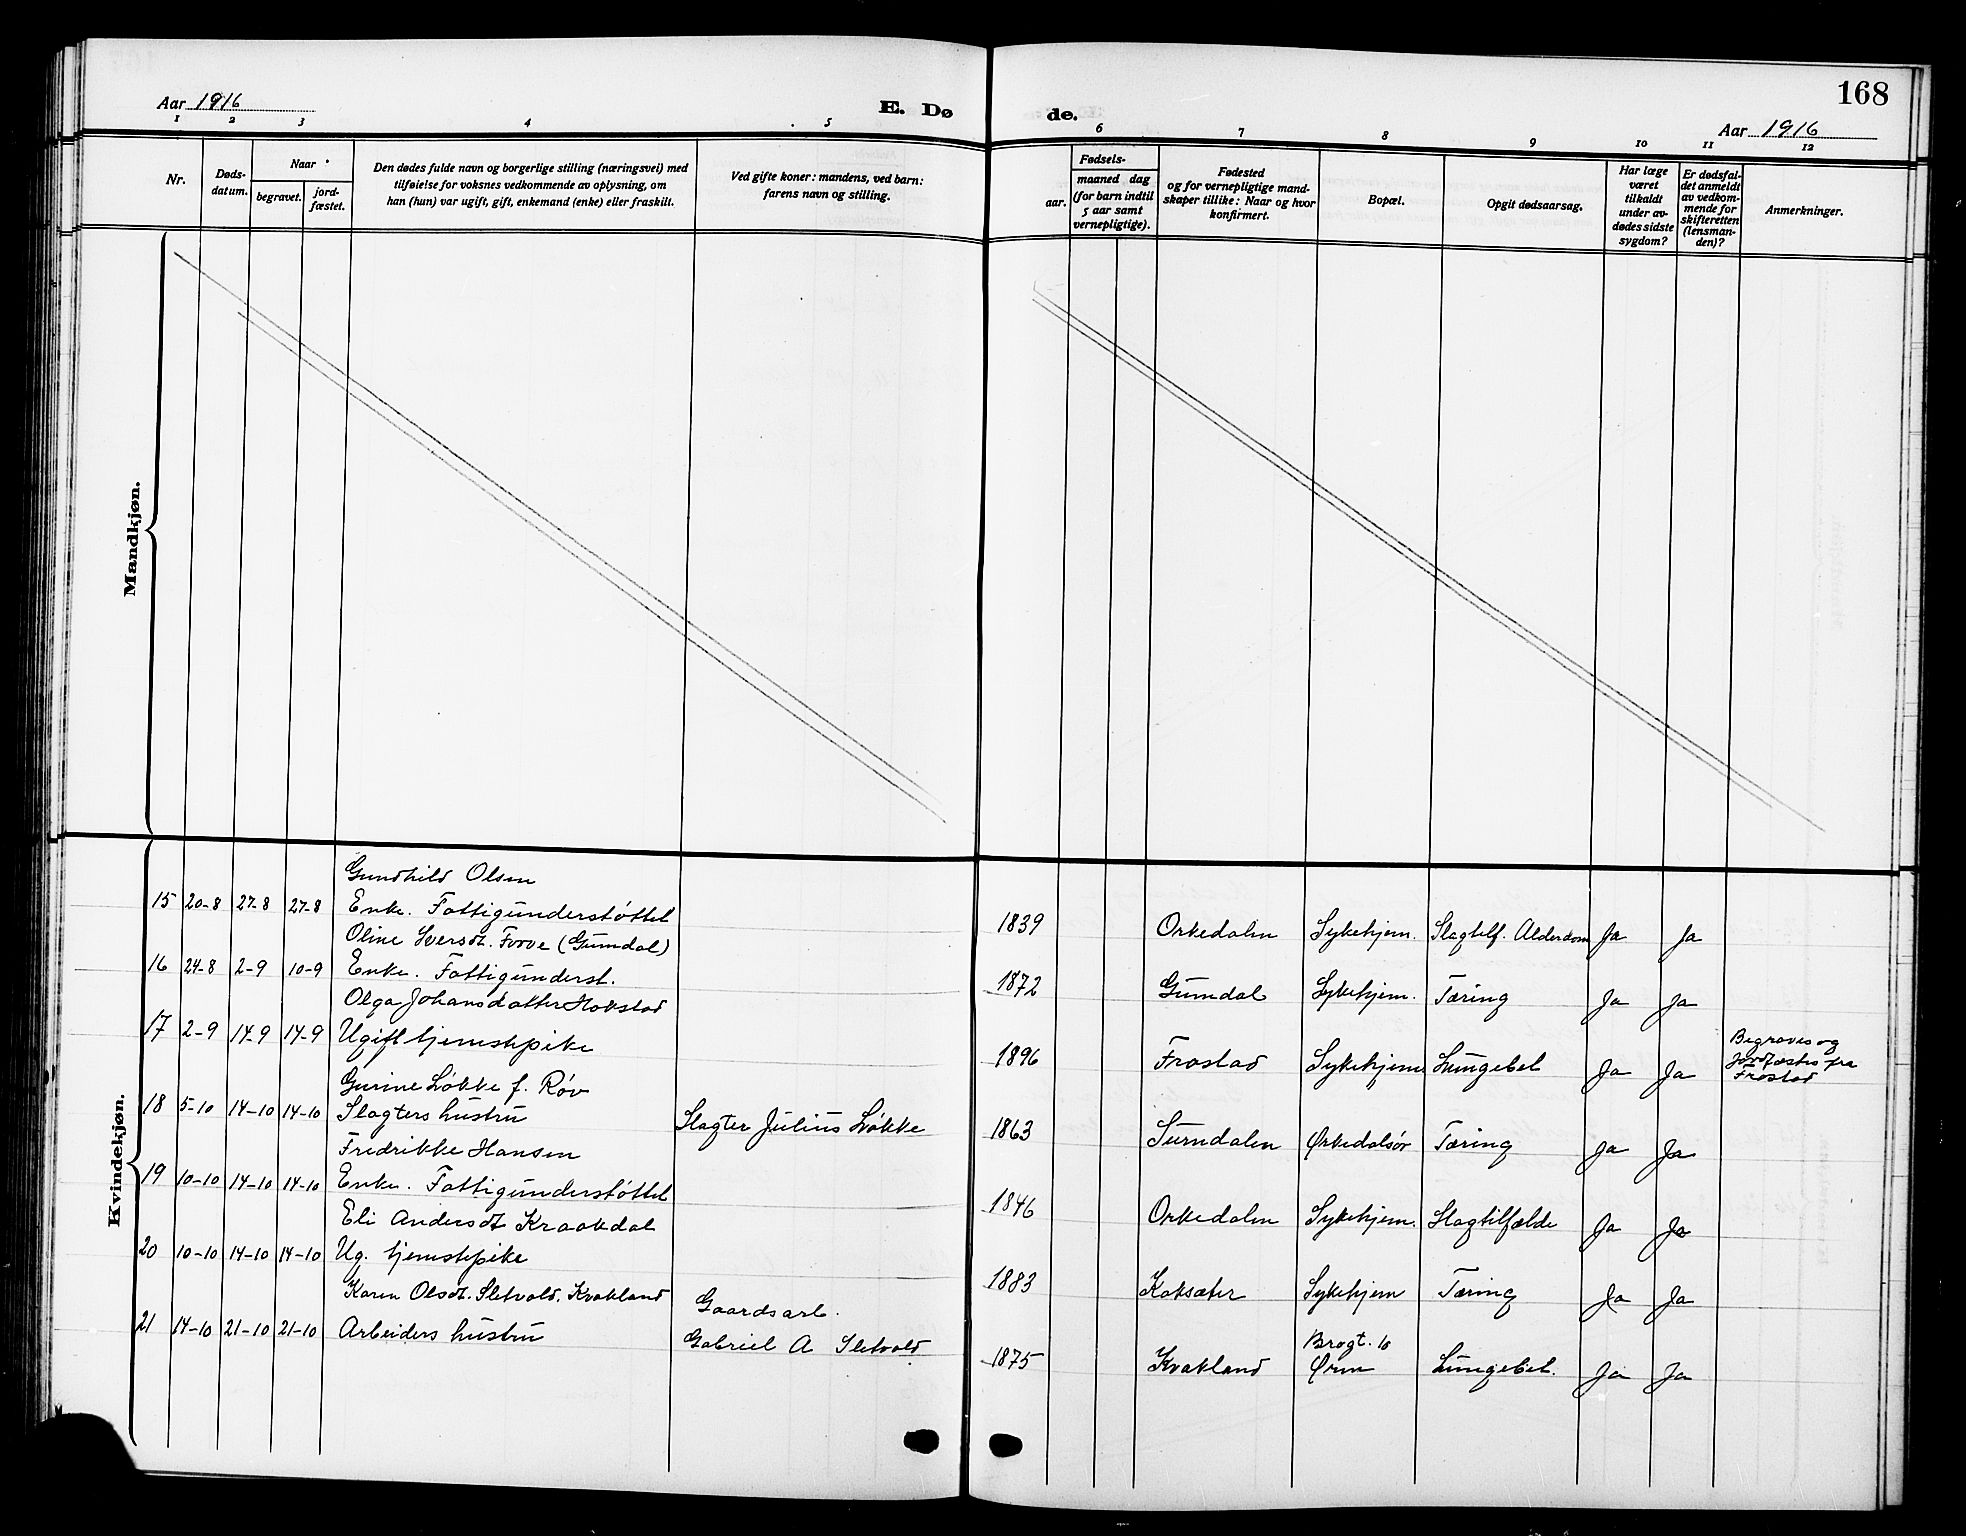 168
Aar 1916
E. Dø de.
Aar 1916
1 2 3 4 5 6 7 8 9 10 11 12
Nr.
Døds-
datum.
Naar
begravet.
jord-
fæstet.
Den dødes fulde navn og borgerlige stilling (næringsvei) med
tilføielse for voksnes vedkommende av oplysning, om
han (hun) var ugift, gift, enkemand (enke) eller fraskilt.
Ved gifte koner: mandens, ved barn:
farens navn og stilling.
Fødsels-
aar.
maaned dag
(for barn indtil
5 aar samt
vernepligtige).
Fødested
og for vernepligtige mand-
skaper tillike: Naar og hvor
konfirmert.
Bopæl.
Opgit dødsaarsag.
Har læge
været
tilkaldt
under av-
dødes sidste
sygdom?
Er dødsfal-
det anmeldt
av vedkom-
mende for
skifteretten
(lensman-
den)?
Anmerkninger.
Mandkjøn.
Kvindekjøn.
Gundhild Olsen
15 20-8 27-8 27-8 Enke. Fattigunderstøttet
1839 Orkedalen Sykehjem. Slagtilf. Alderdom Ja Ja
Oline Iversdt. Forve (Gumdal)
16 24-8 2-9 10-9 Enke. Fattigunderst.
1872 Gumdal Sykehjem. Tæring Ja Ja
Olga Johansdatter Hokstad
17 2-9 14-9 14-9 Ugift tjenestepike
1896 Frostad Sykehjem Lungebet Ja Ja
Begraves og
jordfæstes fra
Frostad
Gurine Løkke f. Røv
18 5-10 14-10 14-10 Slagters hustru Slagter Julius Løkke
1863 Surndalen Ørkedalsør Tæring Ja Ja
Fredrikke Hansen
19 10-10 14-10 14-10 Enke. Fattigunderstøttet
1846 Orkedalen Sykehjem. Slagtilfælde Ja Ja
Eli Andersdt Kraakdal
20 10-10 14-10 14-10 Ug. tjenestepike
1883 Koksæter Sykehjem Tæring Ja Ja
Karen Olsdt. Sletvold, Kvakland
Gaardsarb.
21 14-10 21-10 21-10 Arbeiders hustru Gabriel A Sletvold
Brogt. 10
1875 Kvakland Øren Lungebet. Ja Ja